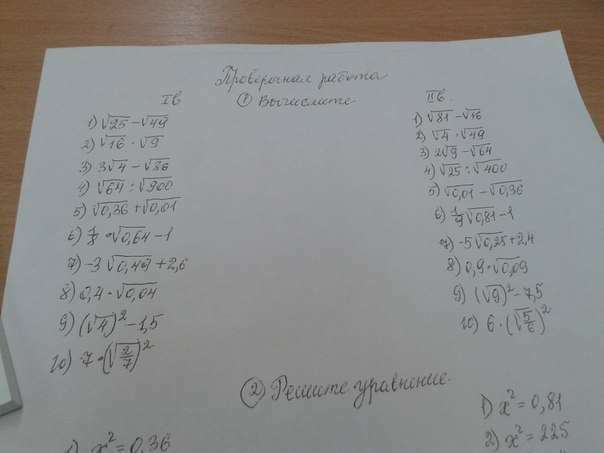 Проверочная работа
Iв
① Вычислите
1) √25 − √49
2) √16 · √9
3) 3√4 − √36
4) √64 : √900
5) √0,36 + √0,01
6) 1/8 · √0,64 − 1
7) −3√0,49 + 2,6
8) 0,4 · √0,04
9) (√4)² − 1,5
10) 7 · (√2/7)²
IIв.
1) √81 − √16
2) √4 · √49
3) 2√9 − √64
4) √25 : √400
5) √0,01 − √0,36
6) 1/9 √0,81 − 1
7) −5√0,25 + 2,4
8) 0,9 · √0,09
9) (√9)² − 7,5
10) 6 · (√5/6)²
② Решите уравнение.
1) x² = 0,36
1) x² = 0,81
2) x² = 225